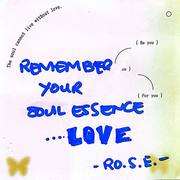 The soul cannot live without love.
( Be you )
( as )
( For you )
REMEMBER
YOUR
SOUL ESSENCE
....LOVE
- RO.S.E. -